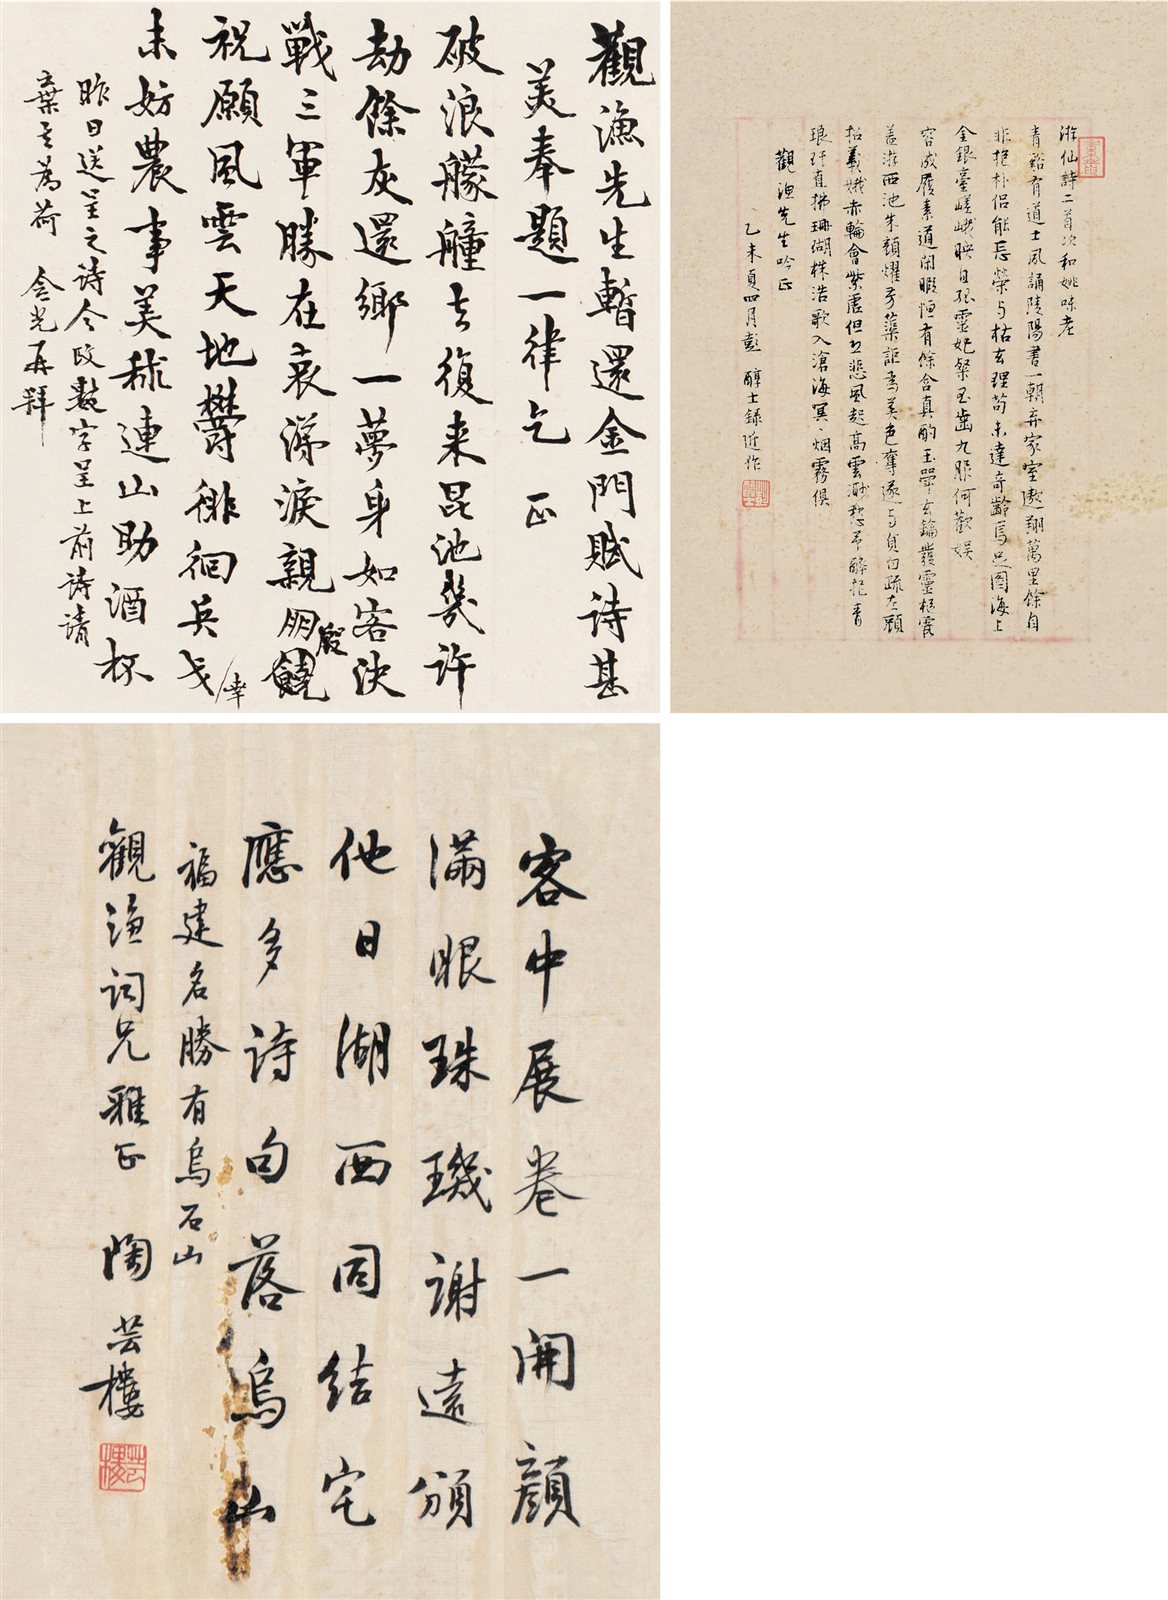 觀漁先生暫還金門賦詩甚
美奉題一律乞 正
破浪艨艟去復来昆池幾許
劫餘灰還鄉一夢身如客決
戰三軍勝在哀涕淚親朋饒
殷
祝願風雲天地鬱徘徊兵戈
幸
未妨農事美秫連山助酒杯
昨日送呈之詩今改數字呈上前詩請
棄去為荷 含光再拜
游仙詩二首次和姚味老
青谿有道士夙誦陵陽書一朝弃家室遨翔萬里餘自
非抱朴侣能忘榮与枯玄理苟未達奇齡焉足圖海上
金銀臺嵯峨映自孤靈妃粲玉齒九賑何歡娱
容成履素道閑暇恒有餘含真酌玉斝玄鑰發靈樞霞
盖游西池朱顔燿芳蕖詎為美色奪遂与貞白疏左顧
招羲娥赤輪會紫虚但恐悲風起高雲渺愁予醉把青
琅玕直拂珊瑚株浩歌入滄海冥冥烟霧俱
觀漁先生吟正
乙未夏四月彭醇士録近作
客中展卷一開顔
滿眼珠璣謝遠頒
他日湖西同結宅
應多詩句落烏山
福建名勝有烏石山
觀漁詞兄雅正 陶芸樓
芸樓